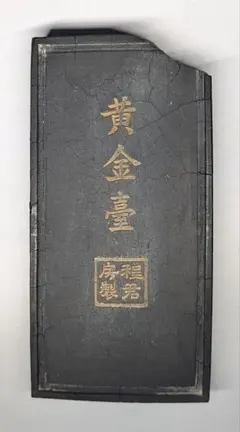 黃金臺
程君房製